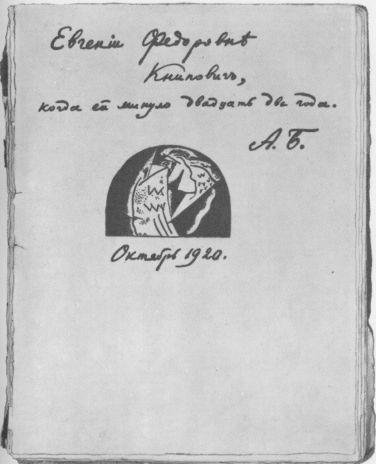 Евгеніи Федоровнѣ
Книповичъ,
когда ей минуло двадцать два года.
А.Б.
Октябрь 1920.